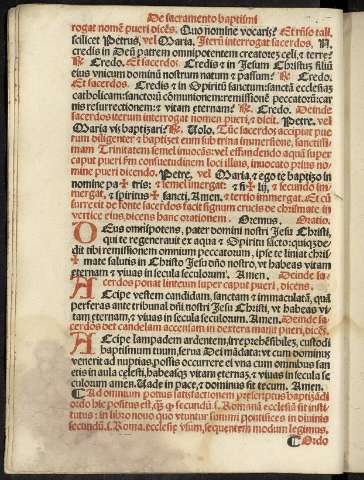 De sacramento baptismi
rogat nomẽ pueri dicẽs. Quo nomine vocariz? Et rñso tali,
scilicet Petrus, vel Maria. Iterũ interrogat sacerdos. N.
credis in Deũ patrem omnipotentem creatorem celi, & terre?
℟. Credo. Et sacerdos. Credis & in Jesum Christũ filiũ
eius vnicum dominũ nostrum natum & passum? ℟. Credo.
Et sacerdos. Credis & in Spiritũ sanctum: sanctã ecclesiaz
catholicam: sanctorũ cõmunionem: remissionẽ peccatorũ: car-
nis resurrectionem: & vitam eternam? ℟. Credo. Deinde
sacerdos iterum interrogat nomen pueri, & dicit. Petre, vel
Maria vis baptizari? ℟. Uolo. Tũc sacerdos accipiat pue
rum diligenter & baptizet eum sub trina immersione, sanctissi-
mam Trinitatem semel inuocãs: vel effundendo aquã super
caput pueri scðm consuetudinem loci illius, inuocato prius no-
mine pueri dicendo. Petre, vel Maria, & ego te baptizo in
nomine pa ✠ tris: & semel mergat: & fi ✠ lij, & secundo im-
mergat, & spiritus ✠ sancti. Amen. & tertio immergat. Et cũ
surrexit de fonte sacerdos facit signum crucis de chrismate in
vertice eius, dicens hanc orationem. Oremus. Oratio.
DEus omnipotens, pater domini nostri Jesu Christi,
qui te regenerauit ex aqua & Spiritu sãcto: quiqz de-
dit tibi remissionem omnium peccatorum, ipse te liniat chri-
✠ mate salutis in Christo Jesu dño nostro, vt habeas vitam
eternam & viuas in secula seculorum. Amen. Deinde sa-
cerdos ponat linteum super caput pueri, dicens.
ACcipe vestem candidam, sanctam & immaculatã, quã
perferas ante tribunal dñi nostri Jesu Christi, vt habeas vi-
tam eternam, & viuas in secula seculorum. Amen. Deinde sa-
cerdos det candelam accensam in dextera manu pueri, dicẽs.
ACcipe lampadem ardentem, irreprehẽsibiles, custodi
baptismum tuum, serua Dei mãdata: vt cum dominus
venerit ad nuptias, possis occurrere ei vna cum omnibus san
ctis in aula celesti, habeasqz vitam eternaz, & viuas in secula se
culorum amen. Uade in pace, & dominus sit tecum. Amen.
¶ Ad omnium ponit satisfactionem prescriptus baptizãdi
ordo hic positus est, secundũ s. Romanã ecclesiã sit insti
tutus: in libro nouo quo vtuntur summi pontifices in diuinis
secundũ s. Roma. ecclesie vsum, sequentem modum legimus.
¶ Ordo